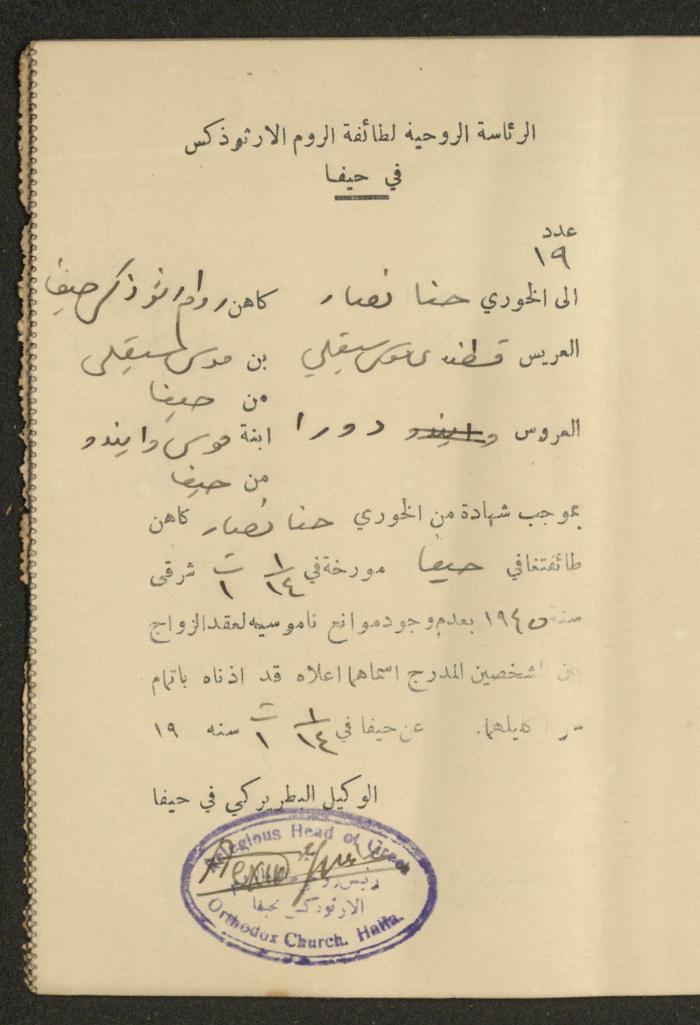 الرئاسة الروحية لطائفة الروم الارثوذكس
في حيفا
عدد
١٩
الى الخوري حنا نصار كاهن روم ارثوذكس حيفا
العريس قسطندي موسى سيقلي بن موسى سيقلي
من حيفا
العروس دورا ابنة موسى وايندو
من حيفا
بموجب شهادة من الخوري حنا نصار كاهن
طائفتنا في حيفا مورخة في ١/١٤ ت ١ شرقي
سنة ١٩٤٥ بعدم وجود موانع ناموسيه لعقد الزواج
بين الشخصين المدرج اسماهما اعلاه قد اذناه باتمام
سر اكليلهما. عن حيفا في ١/١٤ ت ١ سنه ١٩
الوكيل البطريركي في حيفا
Relegious Head of Greek
رئيس روحي
الارثوذكس بحيفا
Orthodox Church. Haifa.